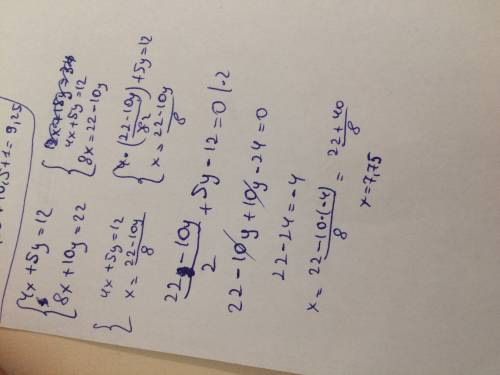 +10,5+1=9,25
{4x+5y=12
8x+10y=22
{4x+5y=12
8x=22-10y
{4x+5y=12
x=22-10y/8
{4·(22-10y/8 2)+5y=12
x=22-10y/8
22-10y/2+5y-12=0|·2
22-10y+10y-24=0
22-24=-4
x=22-10·(-4)/8=22+40/8
x=7,75